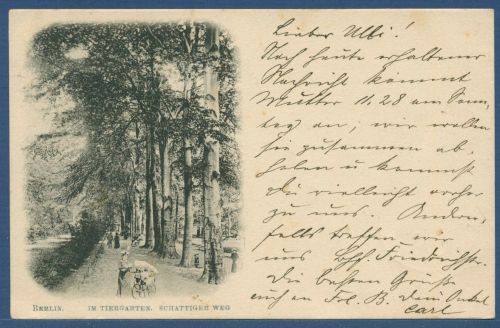 Lieber Ulli!
Nach heute erhaltener
Nachricht kommt
Mutter 11.28 am Sonn
tag an, wir wollen
sie zusammen ab-
holen u kommst
Du vielleicht vorher
zu uns. Andern
falls treffen wir
uns Bhf. Friedrichstr.
Die besten Grüße
auch an Frl. B. Dein Onkel
Carl
BERLIN. IM TIERGARTEN. SCHATTIGER WEG